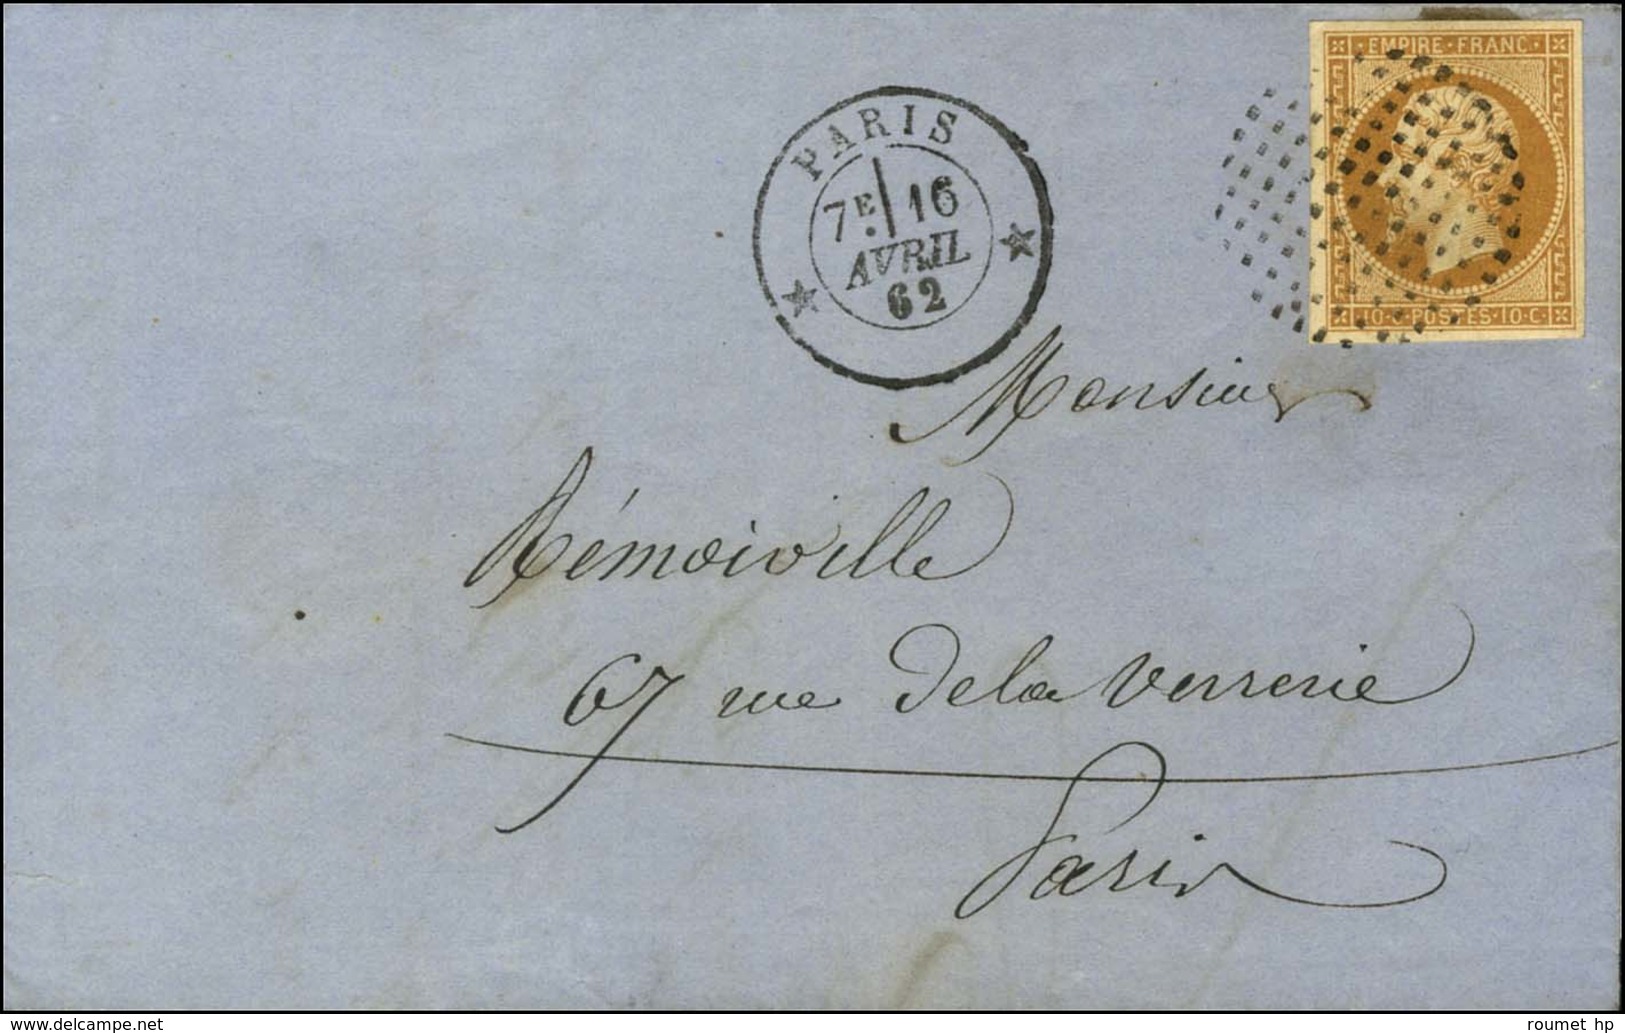 EMPIRE · FRANC ·
10 · C · POSTES · 10 · C ·
PARIS
7E 16
AVRIL
62
Monsieur
Rémoiville
67 rue de la Verrerie
Paris
delcampe.net
roumet hp